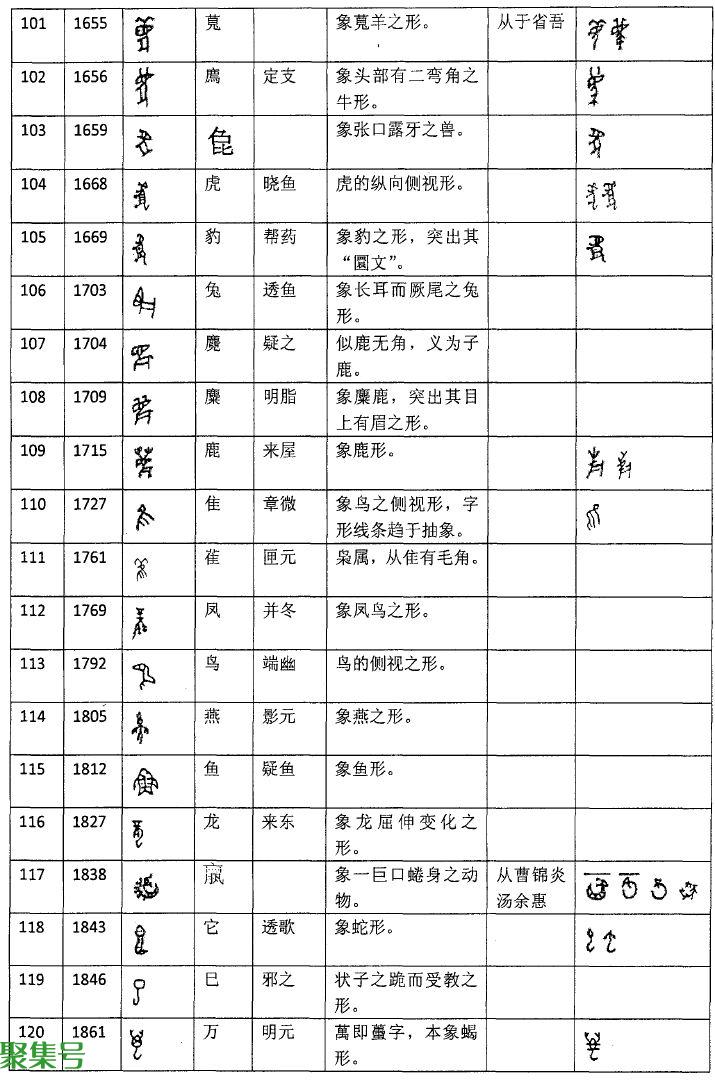 101 1655 萈 象萈羊之形。 从于省吾
102 1656 廌 定支 象头部有二弯角之
牛形。
103 1659 㲋 象张口露牙之兽。
104 1668 虎 晓鱼 虎的纵向侧视形。
105 1669 豹 帮药 象豹之形，突出其
“圜文”。
106 1703 兔 透鱼 象长耳而厥尾之兔
形。
107 1704 麑 疑之 似鹿无角，义为子
鹿。
108 1709 麋 明脂 象麋鹿，突出其目
上有眉之形。
109 1715 鹿 来屋 象鹿形。
110 1727 隹 章微 象鸟之侧视形，字
形线条趋于抽象。
111 1761 雈 匣元 枭属，从隹有毛角。
112 1769 凤 并冬 象凤鸟之形。
113 1792 鸟 端幽 鸟的侧视之形。
114 1805 燕 影元 象燕之形。
115 1812 鱼 疑鱼 象鱼形。
116 1827 龙 来东 象龙屈伸变化之
形。
117 1838 象一巨口蜷身之动 从曹锦炎
物。 汤余惠
118 1843 它 透歌 象蛇形。
119 1846 巳 邪之 状子之跪而受教之
形。
120 1861 万 明元 萬即蠆字，本象蝎
形。
聚集号